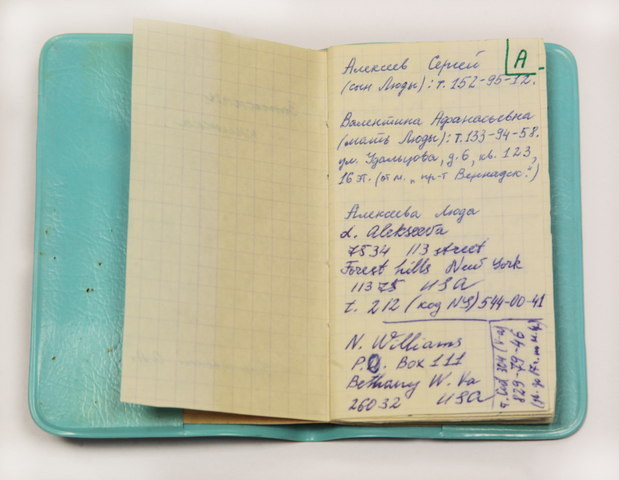 А
Алексеев Сергей
(сын Люды): т. 152-95-12.
Валентина Афанасьевна
(мать Люды): т. 133-94-58.
ул. Удальцова, д. 6, кв. 123,
16 эт. (от м. „пр-т Вернадск.")
Алексеева Люда
L. Alekseeva
7534 113 street
Forest hills New York
11375 USA
t. 212 (код NY) 544-00-41
N. Williams
P.O. Box 111
Bethany W. Va
26032 USA
829-79-46